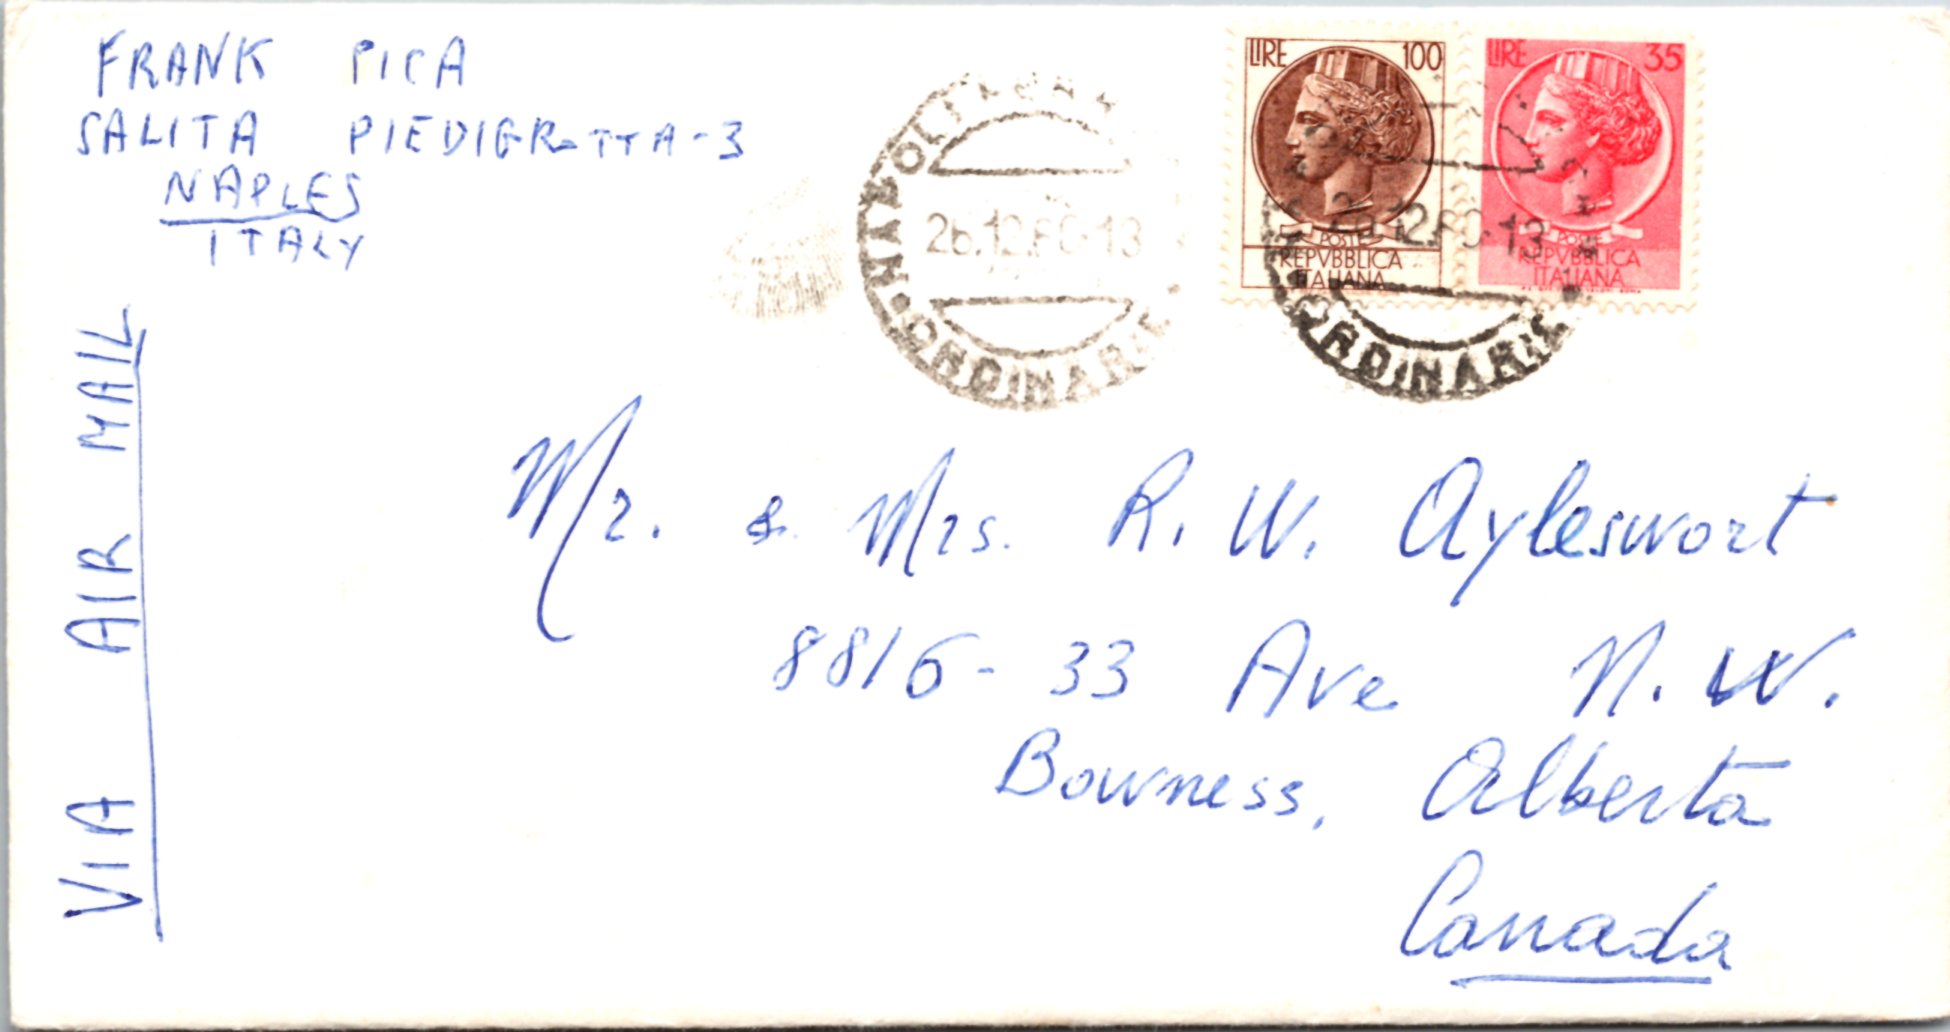 FRANK PICA
SALITA PIEDIGROTTA-3
NAPLES
ITALY
VIA AIR MAIL
26.12.60-13
ORDINARIE
LIRE 100
POSTE
REPVBBLICA
ITALIANA
LIRE 35
POSTE
REPVBBLICA
ITALIANA
26.12.60-13
ORDINARIE
Mr. & Mrs. R. W. Ayleswort
8816-33 Ave N. W.
Bowness, Alberta
Canada